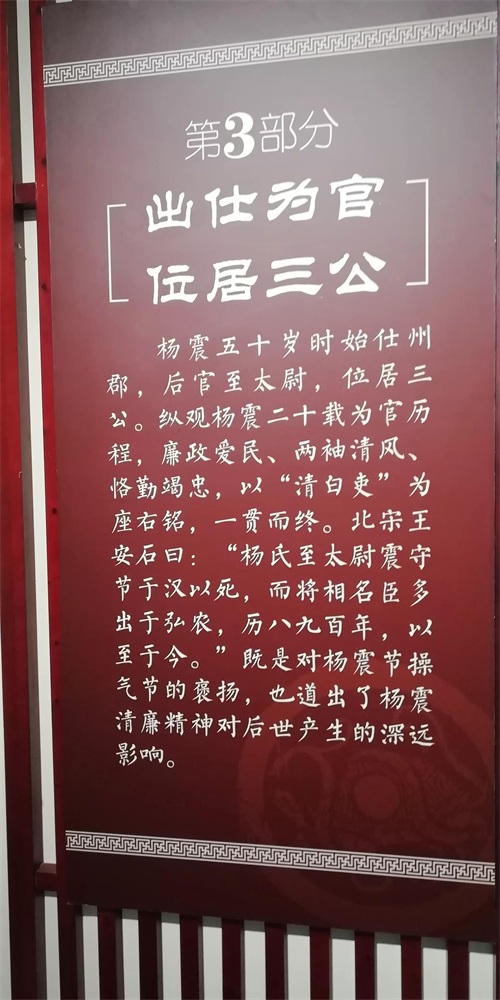 第3部分
出仕为官
位居三公
杨震五十岁时始仕州
郡，后官至太尉，位居三
公。纵观杨震二十载为官历
程，廉政爱民、两袖清风、
恪勤竭忠，以“清白吏”为
座右铭，一贯而终。北宋王
安石曰：“杨氏至太尉震守
节于汉以死，而将相名臣多
出于弘农，历八九百年，以
至于今。”既是对杨震节操
气节的褒扬，也道出了杨震
清廉精神对后世产生的深远
影响。